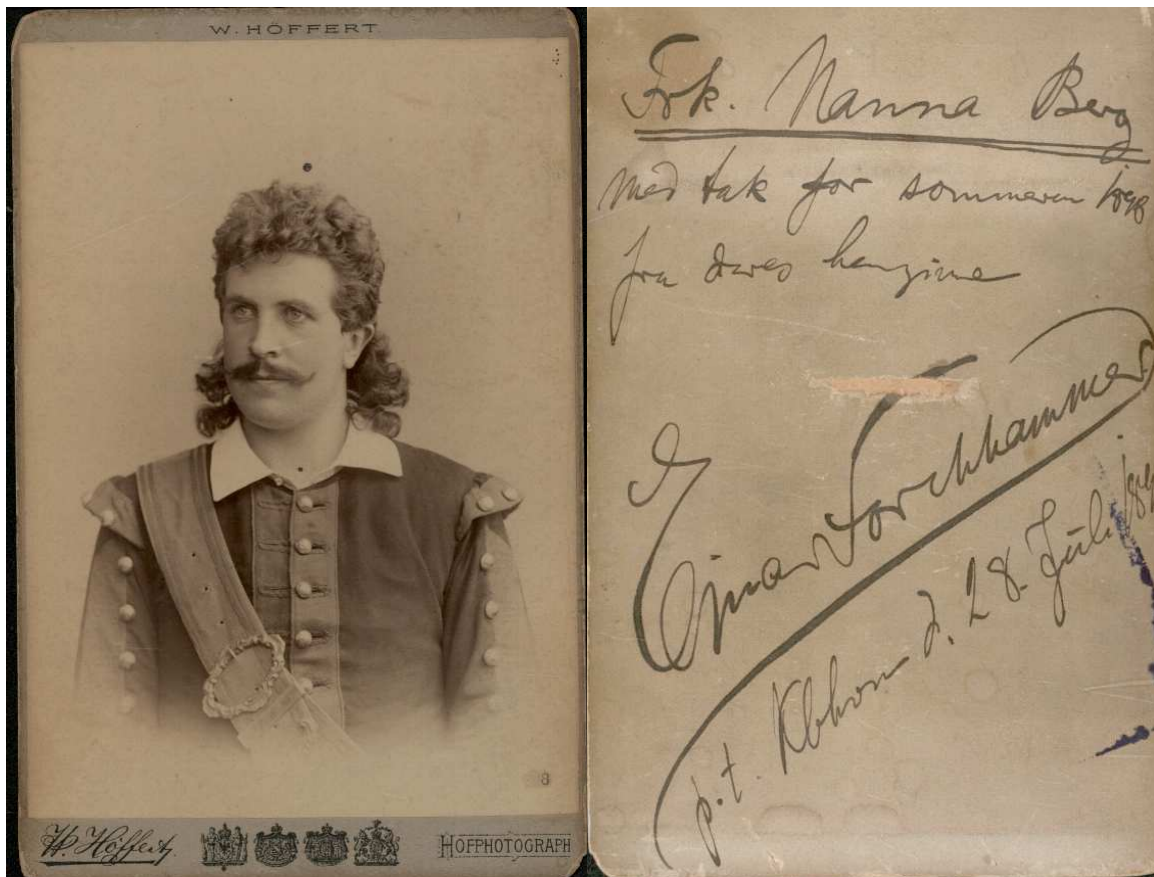 W. HÖFFERT
W. Höffert
HOFPHOTOGRAPH
Frk. Nanna Berg
med tak for sommeren 1898
fra deres hengivne
Ejnar Forchhammer
p.t. Kbhvn d. 28. Juli